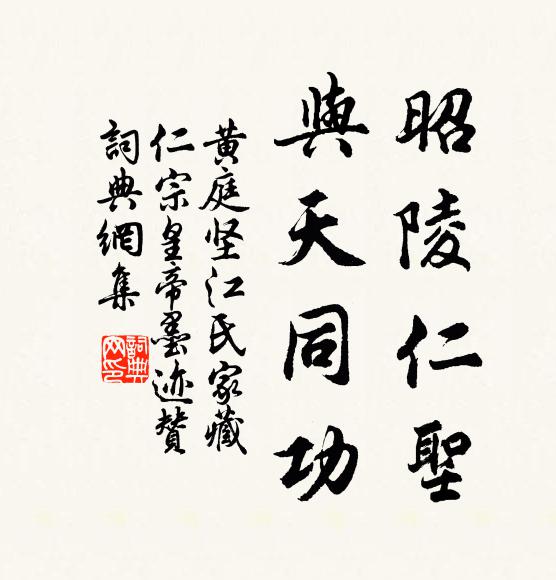 昭陵仁聖
與天同功
黄庭坚江氏家藏
仁宗皇帝墨迹贊
詞典網集
詞典网印